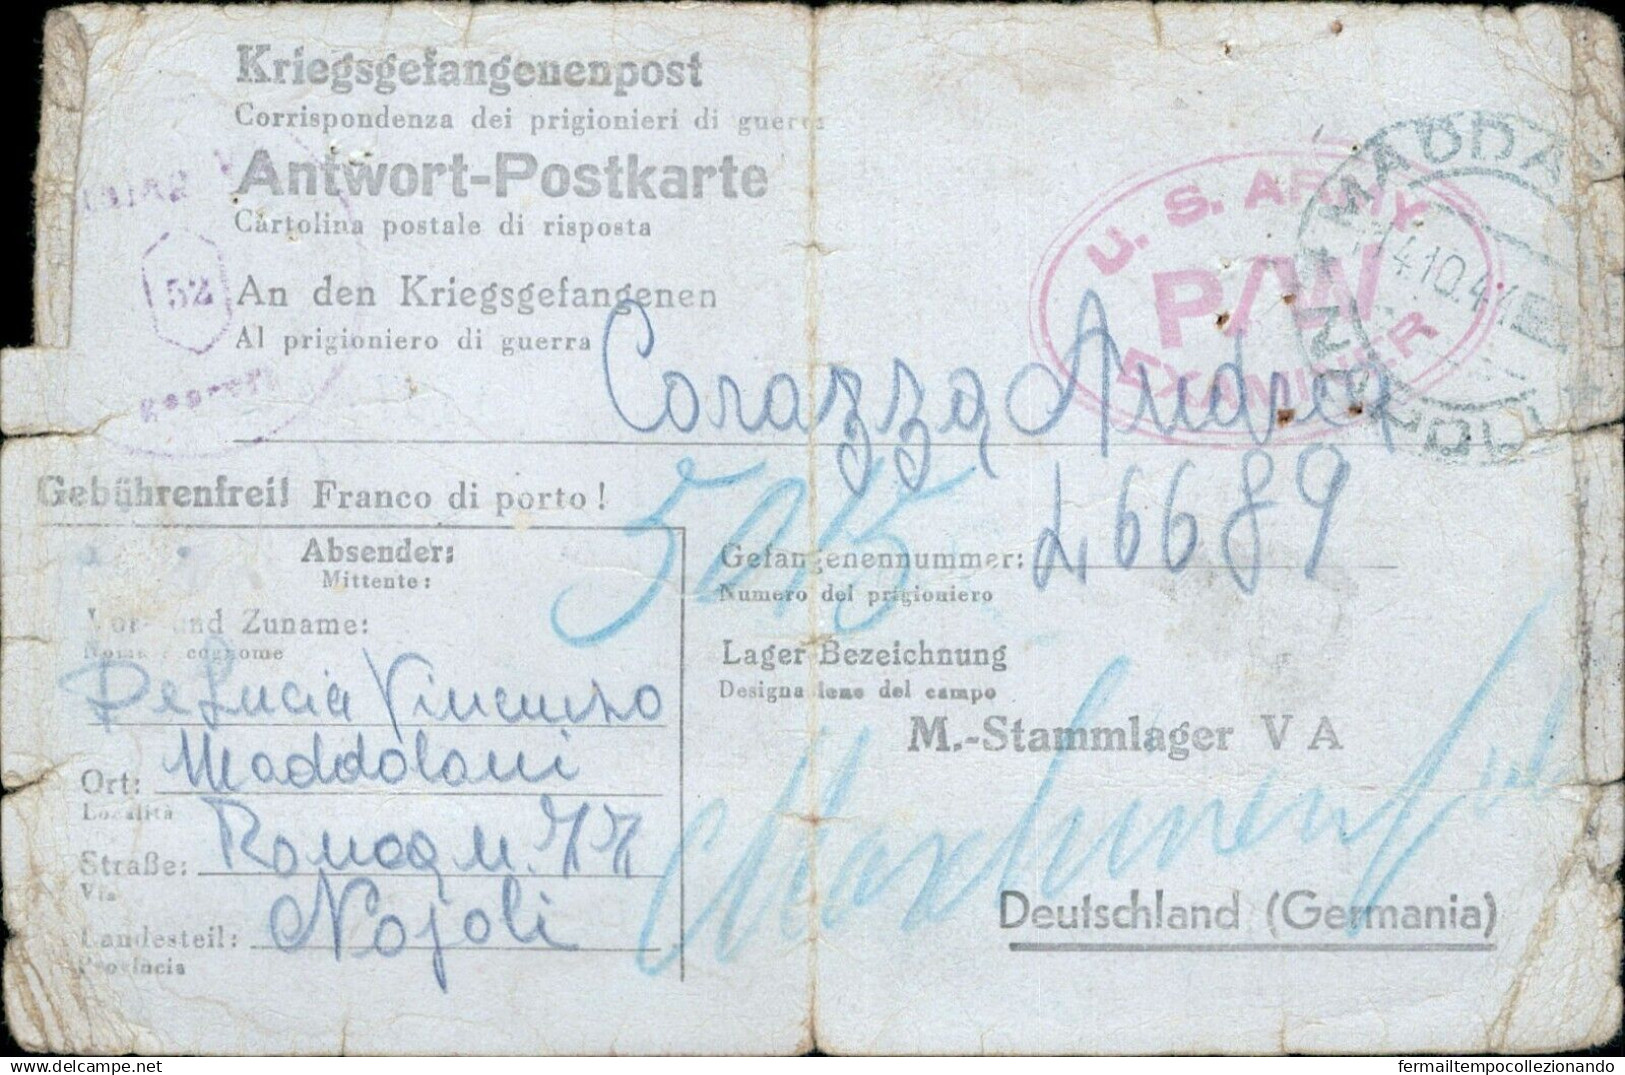 Kriegsgefangenenpost
Corrispondenza dei prigionieri di guerra
Antwort-Postkarte
Cartolina postale di risposta
An den Kriegsgefangenen
Al prigioniero di guerra
Corazza Andrea
52
U. S. ARMY
P/W
EXAMINER
MADDA
NAPOLI
Gebührenfrei! Franco di porto!
Absender:
Mittente:
Vor- und Zuname:
Nome e cognome
De Lucia Vincenzo
Ort: Maddolani
Località
Straße:
Via
Landesteil: Napoli
Provincia
Gefangenennummer: 46689
Numero del prigioniero
Lager Bezeichnung
Designazione del campo
M.-Stammlager V A
Deutschland (Germania)
fermailtempocollezionando